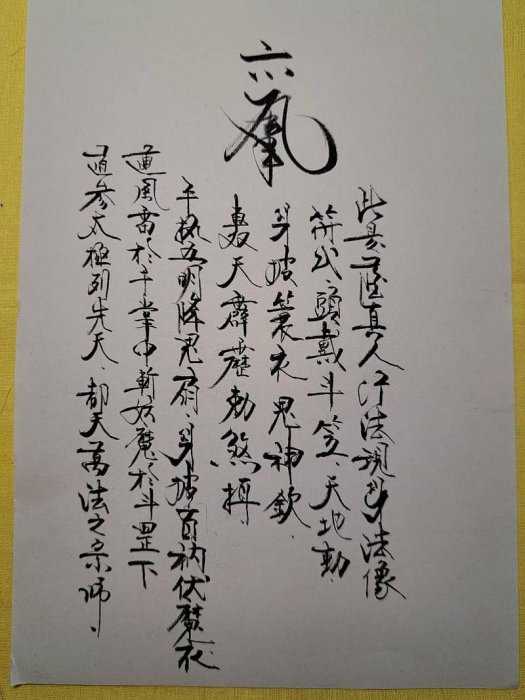 此是薩真人行法現身法像
符式、頭戴斗笠、天地動
身披簑衣鬼神欽、
轟天霹靂勅煞摄
手搖五明降鬼扇、身披百衲伏魔衣
運風雷於手掌中斬妖魔於斗罡下
道參太極列先天、都天萬法之宗師、